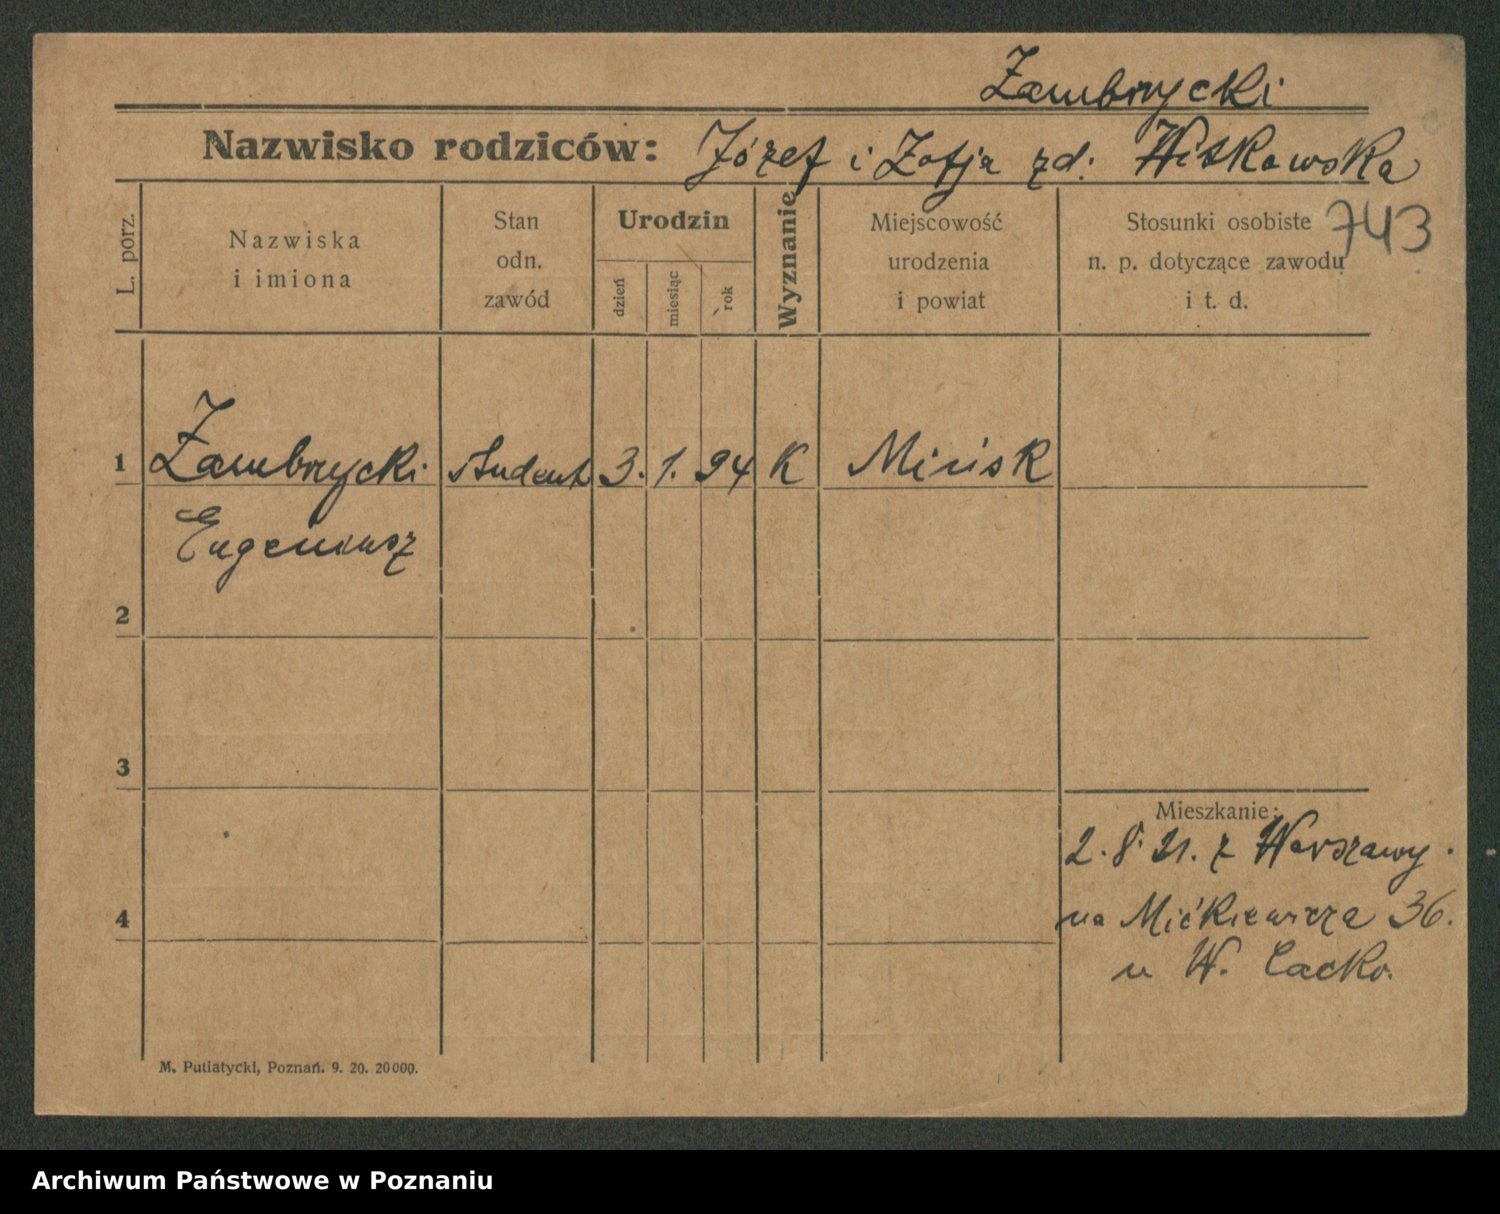 Zambrzycki
Nazwisko rodziców: Józef i Zofja zd: Witkowska
743
L. porz.
Nazwiska
i imiona
Stan
odn.
zawód
Urodzin
dzień
miesiąc
rok
Wyznanie
Miejscowość
urodzenia
i powiat
Stosunki osobiste
n. p. dotyczące zawodu
i t. d.
1 Zambrzycki student 3. 1. 94 K Mińsk
Eugeniusz
2
3
Mieszkanie:
2. 8. 21. z Warszawy.
4
na Mickiewicza 36.
u W. Cacko.
M. Putiatycki, Poznań. 9. 20. 20000.
Archiwum Państwowe w Poznaniu